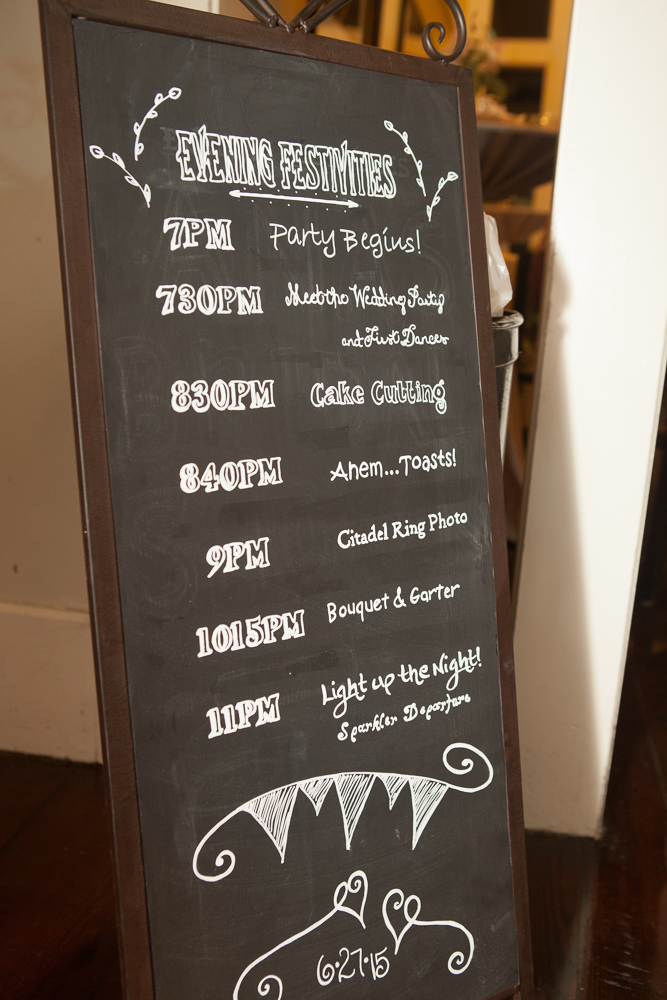 EVENING FESTIVITIES
7PM Party Begins!
730PM Meet the Wedding Party
and First Dances
830PM Cake Cutting
840PM Ahem...Toasts!
9PM Citadel Ring Photo
1015PM Bouquet & Garter
11PM Light up the Night!
Sparkler Departure
6·27·15